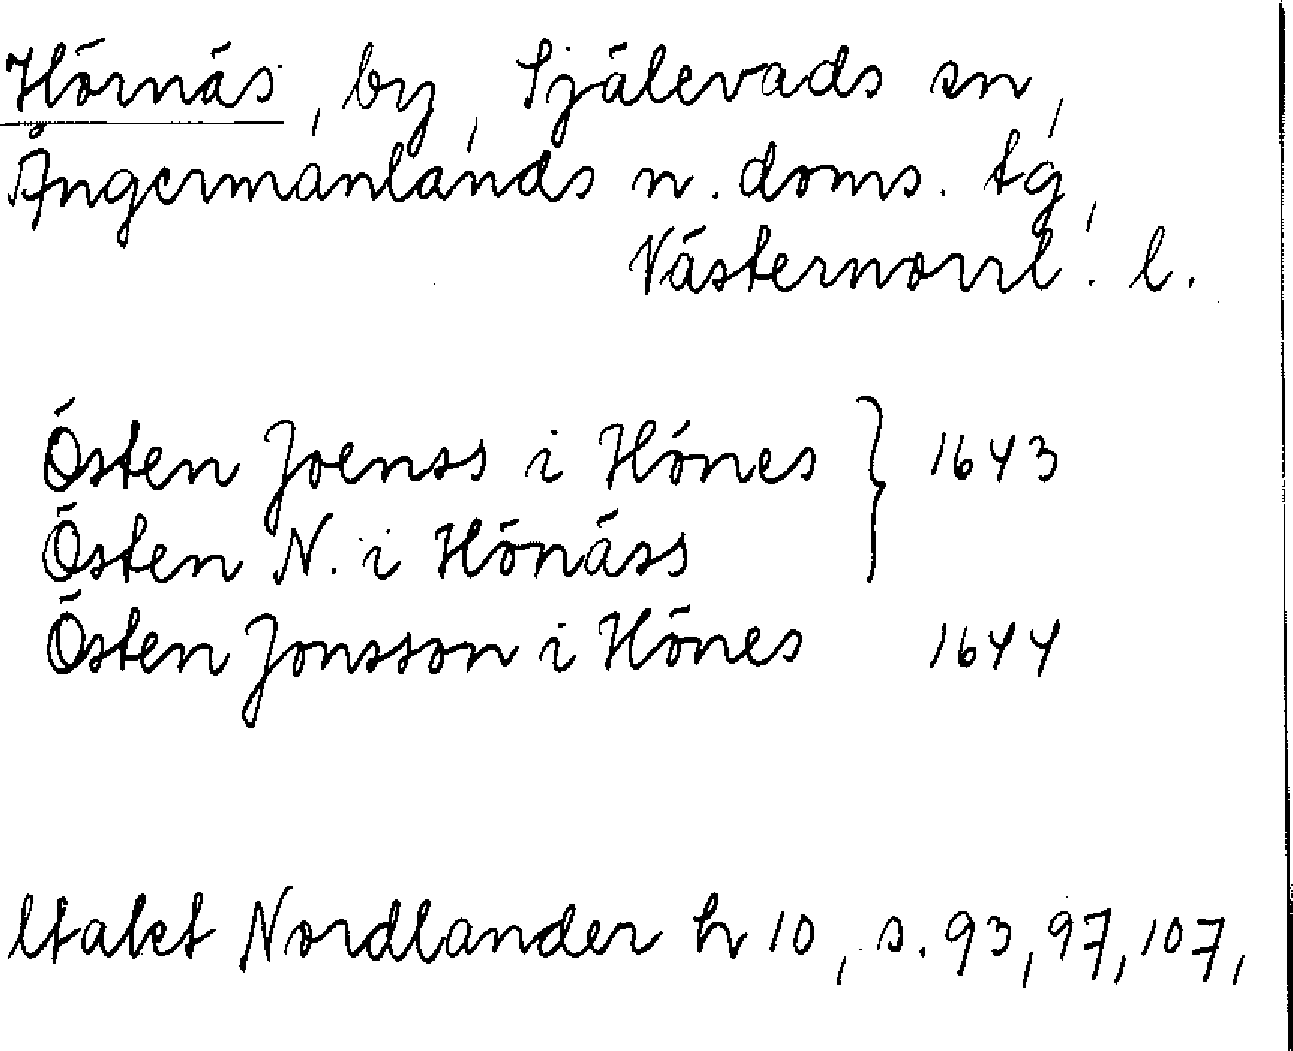 Hörnäs, by, Själevads sn,
Ångermanlands n. doms. tg,
Västernorrl. l.
Östen Joenss i Hönes } 1643
Östen N. i Hönäss
Östen Jonsson i Hönes 1644
Nordlander h 10, s. 93, 97, 107,